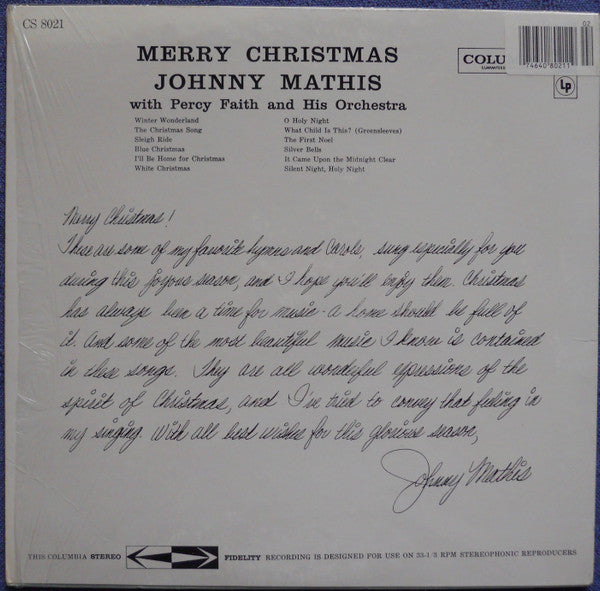 CS 8021
MERRY CHRISTMAS
JOHNNY MATHIS
with Percy Faith and His Orchestra
COLU
02
74640 80211
Lp
Winter Wonderland
The Christmas Song
Sleigh Ride
Blue Christmas
I'll Be Home for Christmas
White Christmas
O Holy Night
What Child Is This? (Greensleeves)
The First Noel
Silver Bells
It Came Upon the Midnight Clear
Silent Night, Holy Night
Merry Christmas!
These are some of my favorite hymns and Carols, sung especially for you
during this joyous season, and I hope you'll enjoy them. Christmas
has always been a time for music - a home should be full of
it. And some of the most beautiful music I know is contained
in these songs. They are all wonderful expressions of the
spirit of Christmas, and I've tried to convey that feeling in
my singing. With all best wishes for this glorious season,
Johnny Mathis
THIS COLUMBIA STEREO FIDELITY RECORDING IS DESIGNED FOR USE ON 33-1/3 RPM STEREOPHONIC REPRODUCERS